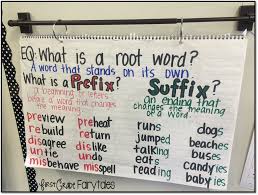 EQ: What is a root word?
A word that stands on its own.
What is a Prefix?
A beginning or letters before a word that changes the meaning
preview
rebuild
disagree
untie
misbehave
preheat
return
dislike
undo
misspell
Suffix?
An ending that changes the meaning of a word.
runs
jumped
talking
eats
reading
dogs
beaches
buses
candies
babies
First Grade Fairytales